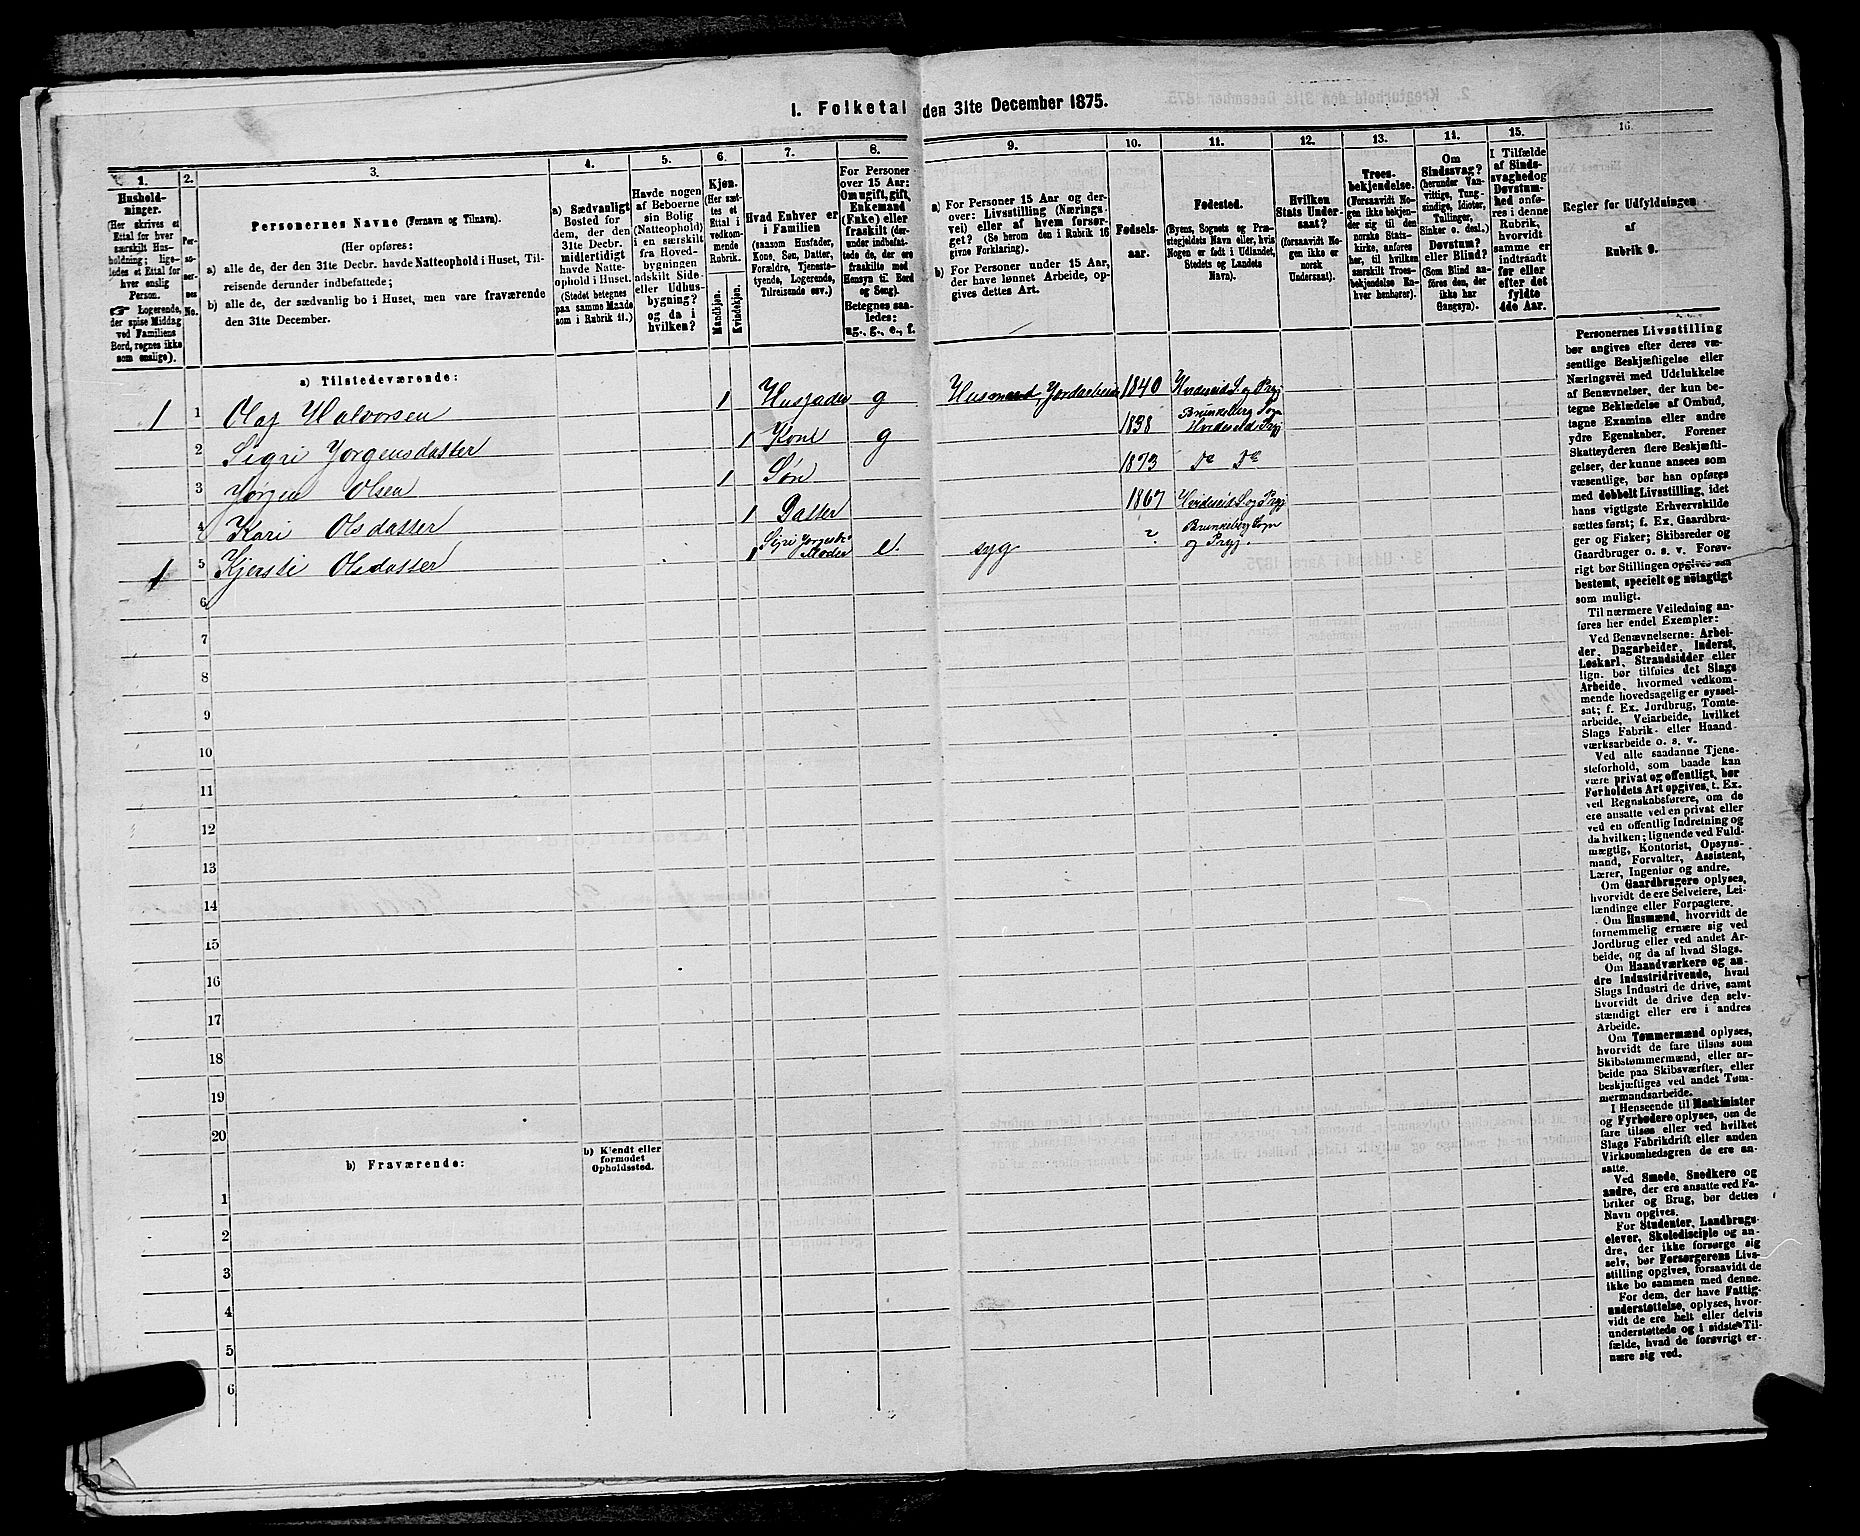 I. Folketal den 31te December 1875.
1.
Hushold-
ninger.
(Her skrives et
Ettal for hver
særskilt Hus-
holdning; lige-
ledes et Ettal for
hver enslig
Person.
☞ Logerende,
der spise Middag
ved Familiens
Bord, regnes ikke
som enslige).
2.
Per-
so-
ner-
nes
No.
3.
Personernes Navne (Fornavn og Tilnavn).
(Her opføres:
a) alle de, der den 31te Decbr. havde Natteophold i Huset, Til-
reisende derunder indbefattede;
b) alle de, der sædvanlig bo i Huset, men vare fraværende
den 31te December.
4.
a) Sædvanligt
Bosted for
dem, der den
31te Decbr.
midlertidigt
havde Natte-
ophold i Huset.
(Stedet betegnes
paa samme Maade
som i Rubrik 11.)
5.
Havde nogen
af Beboerne
sin Bolig
(Natteophold)
i en særskilt
fra Hoved-
bygningen
adskilt Side-
eller Udhus-
bygning?
og da i
hvilken?
6.
Kjøn.
(Her sæt-
tes et
Ettal i
vedkom-
mende
Rubrik.
Mandkjøn.
Kvindekjøn.
7.
Hvad Enhver er
i Familien
(saasom Husfader,
Kone, Søn, Datter,
Forældre, Tjeneste-
tyende, Logerende,
Tilreisende osv.)
8.
For Personer
over 15 Aar:
Om ugift, gift,
Enkemand
(Enke) eller
fraskilt (der-
under indbefat-
tede de, der ere
fraskilte med
Hensyn til Bord
og Seng).
Betegnes saa-
ledes:
ug., g., e., f.
9.
a) For Personer 15 Aar og der-
over: Livsstilling (Nærings-
vei) eller af hvem forsør-
get? (Se herom den i Rubrik 16
givne Forklaring).
b) For Personer under 15 Aar,
der have lønnet Arbeide, op-
gives dettes Art.
10.
Fødsels-
aar.
11.
Fødested.
(Byens, Sognets og Præ-
stegjeldets Navn eller, hvis
Nogen er født i Udlandet,
Stedets og Landets
Navn).
12.
Hvilken
Stats Under-
saat?
(forsaavidt No-
gen ikke er
norsk
Undersaat).
13.
Troes-
bekjendelse.
(Forsaavidt No-
gen ikke bekjen-
der sig til den
norske Stats-
kirke, anføres
her, til hvilken
særskilt Troes-
bekjendelse En-
hver henhører).
14.
Om
Sindssvag?
(herunder Van-
vittige, Tung-
sindige, Idioter,
Tullinger,
Sinker o. desl.)
Døvstum?
eller Blind?
(Som Blind an-
føres den, der
ikke har
Gangsyn).
15.
I Tilfælde
af Sinds-
svaghed og
Døvstum-
hed anfø-
res i denne
Rubrik,
hvorvidt
samme er
indtraadt
før eller
efter det
fyldte
4de Aar.
16.
Regler for Udfyldningen
af
Rubrik 9.
a) Tilstedeværende:
1 1 Olaf Halvorsen 1 Husfader g Husmand Jordarbeide 1840 Hvideseid S. og Prgj
2 Sigri Jørgensdatter 1 Kone g 1838 Brunkeberg Sogn Hvideseid Prgj
3 Jørgen Olsen 1 Søn 1873 Do Do
4 Kari Olsdatter 1 Datter 1867 Hvideseid S. og Prgj
1 5 Kjersti Olsdatter 1 Sigri Jørgensd. Moder e. syg ? Brunkeberg Sogn og Prgj.
6
7
8
9
10
11
12
13
14
15
16
17
18
19
20
b) Fraværende:
b) Kjendt eller
formodet
Opholdssted.
1
2
3
4
5
6
Personernes Livsstilling
bør angives efter deres væ-
sentlige Beskjæftigelse eller
Næringsvei med Udelukkelse
af Benævnelser, der kun be-
tegne Beklædelse af Ombud,
tagne Examina eller andre
ydre Egenskaber. Forener
Skatteyderen flere Beskjæfti-
gelser, der kunne ansees som
væsentlige, bør han opføres
med dobbelt Livsstilling, idet
hans vigtigste Erhvervskilde
sættes først; f. Ex. Gaardbru-
ger og Fisker; Skibsreder og
Gaardbruger o. s. v. Forøv-
rigt bør Stillingen opgives saa
bestemt, specielt og nøiagtigt
som muligt.
Til nærmere Veiledning an-
føres her endel Exempler:
Ved Benævnelserne: Arbei-
der, Dagarbeider, Inderst,
Løskarl, Strandsidder eller
lign. bør tilføies det Slags
Arbeide, hvormed vedkom-
mende hovedsagelig er syssel-
sat; f. Ex. Jordbrug, Tomte-
arbeide, Veiarbeide, hvilket
Slags Fabrik- eller Haand-
værksarbeide o. s. v.
Ved alle saadanne Tjene-
steforhold, som baade kan
være privat og offentligt, bør
Forholdets Art opgives, t. Ex.
ved Regnskabsførere, om de
ere ansatte ved en privat eller
ved en offentlig Indretning og
da hvilken; lignende ved Fuld-
mægtig, Kontorist, Opsyns-
mand, Forvalter, Assistent,
Lærer, Ingeniør og andre.
Om Gaardbrugere oplyses,
hvorvidt de ere Selveiere, Lei-
lændinge eller Forpagtere.
Om Husmænd, hvorvidt de
fornemmelig ernære sig ved
Jordbrug eller ved andet Ar-
beide, og da af hvad Slags.
Om Haandværkere og an-
dre Industridrivende, hvad
Slags Industri de drive, samt
hvorvidt de drive den selv-
stændigt eller ere i andres
Arbeide.
Om Tømmermænd oplyses,
hvorvidt de fare tilsøs som
Skibstømmermænd, eller ar-
beide paa Skibsværfter, eller
beskjæftiges ved andet Tøm-
mermandsarbeide.
I Henseende til Maskinister
og Fyrbødere oplyses, om de
fare tilsøs eller ved hvilket
Slags Fabrikdrift eller anden
Virksomhedsgren de ere an-
satte.
Ved Smede, Snedkere og
andre, der ere ansatte ved Fa-
briker og Brug, bør dettes
Navn opgives.
For Studenter, Landbrugs-
elever, Skoledisciple og an-
dre, der ikke forsørge sig
selv, bør Forsørgerens Livs-
stilling opgives, forsaavidt de
ikke bo sammen med denne.
For dem, der have Fattig-
understøttelse, oplyses, hvor-
vidt de ere helt eller delvis
understøttede og i sidste Til-
fælde, hvad de forøvrigt er-
nære sig ved.